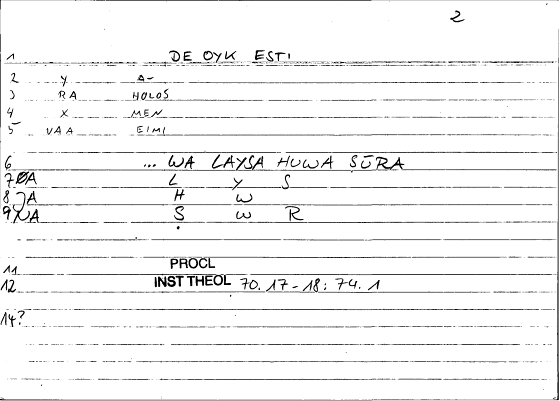 2
1 DE OYK ESTI
2 Y A-
3 RA HOLOS
4 X MEN
5 VAA EIMI
6 ... WA LAYSA HUWA ṢŪRA
7 L Y S
8 H W
9 Ṣ W R
11 PROCL
12 INST THEOL 70.17-18; 74.1
14?